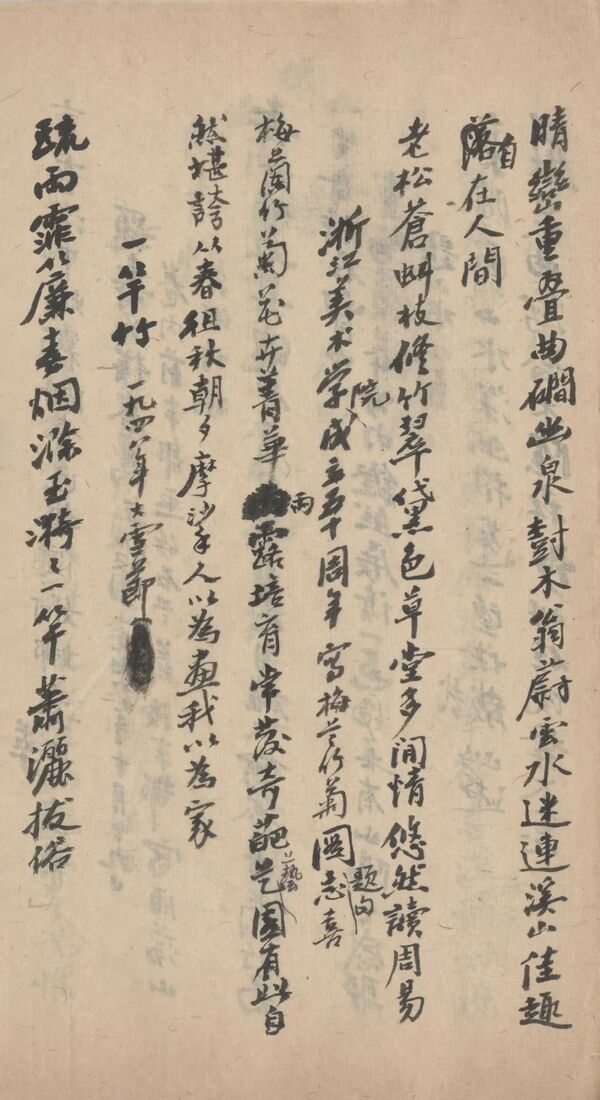 晴巒重疊曲磵幽泉對木蓊蔚雲水迷連溪山佳趣
落自在人間
老松蒼虯枝修竹翠黛色草堂多閒情悠然讀周易
浙江美术学院成立五十周年寫梅兰竹菊圖題句志喜
梅蘭竹菊花卉菁華雨露培育常發奇葩藝圃有此自
然堪誇以春徂秋朝夕摩挲人以為畫我以為家
一竿竹 一九四八年大雪節
疏雨霏以廉春烟滌玉漪々一竿蕭灑拔俗